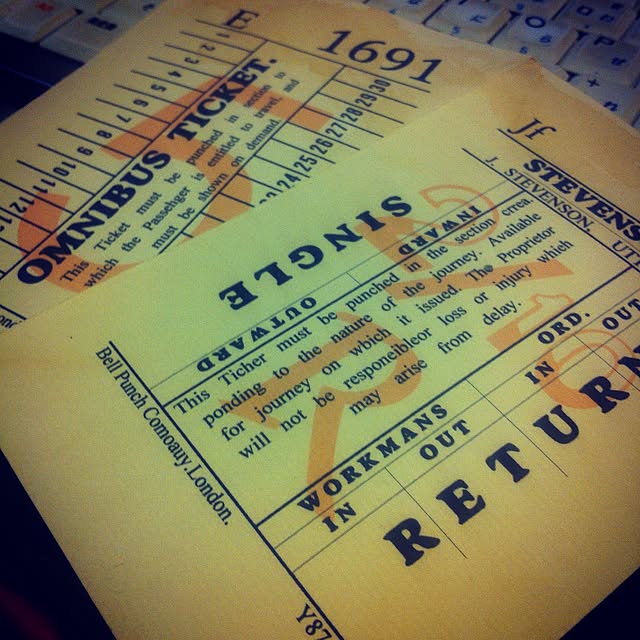 E 1691
1 2 3 4 5 6 7 8 9 10 11 12
OMNIBUS TICKET.
This Ticket must be punched in section
which the Passenger is entitled to travel, and
must be shown on demand.
24 25 26 27 28 29 30
Jf
STEVENS
J. STEVENSON, UTT
SINGLE
OUTWARD INWARD
This Ticher must be punched in the section crea.
ponding to the nature of the journey. Available
for journey on which it issued. The Proprietor
will not be responeibleor loss or injury which
may arise from delay.
WORKMANS ORD.
IN OUT IN OUT
RETURN
Bell Punch Comoauy, London.
Y87